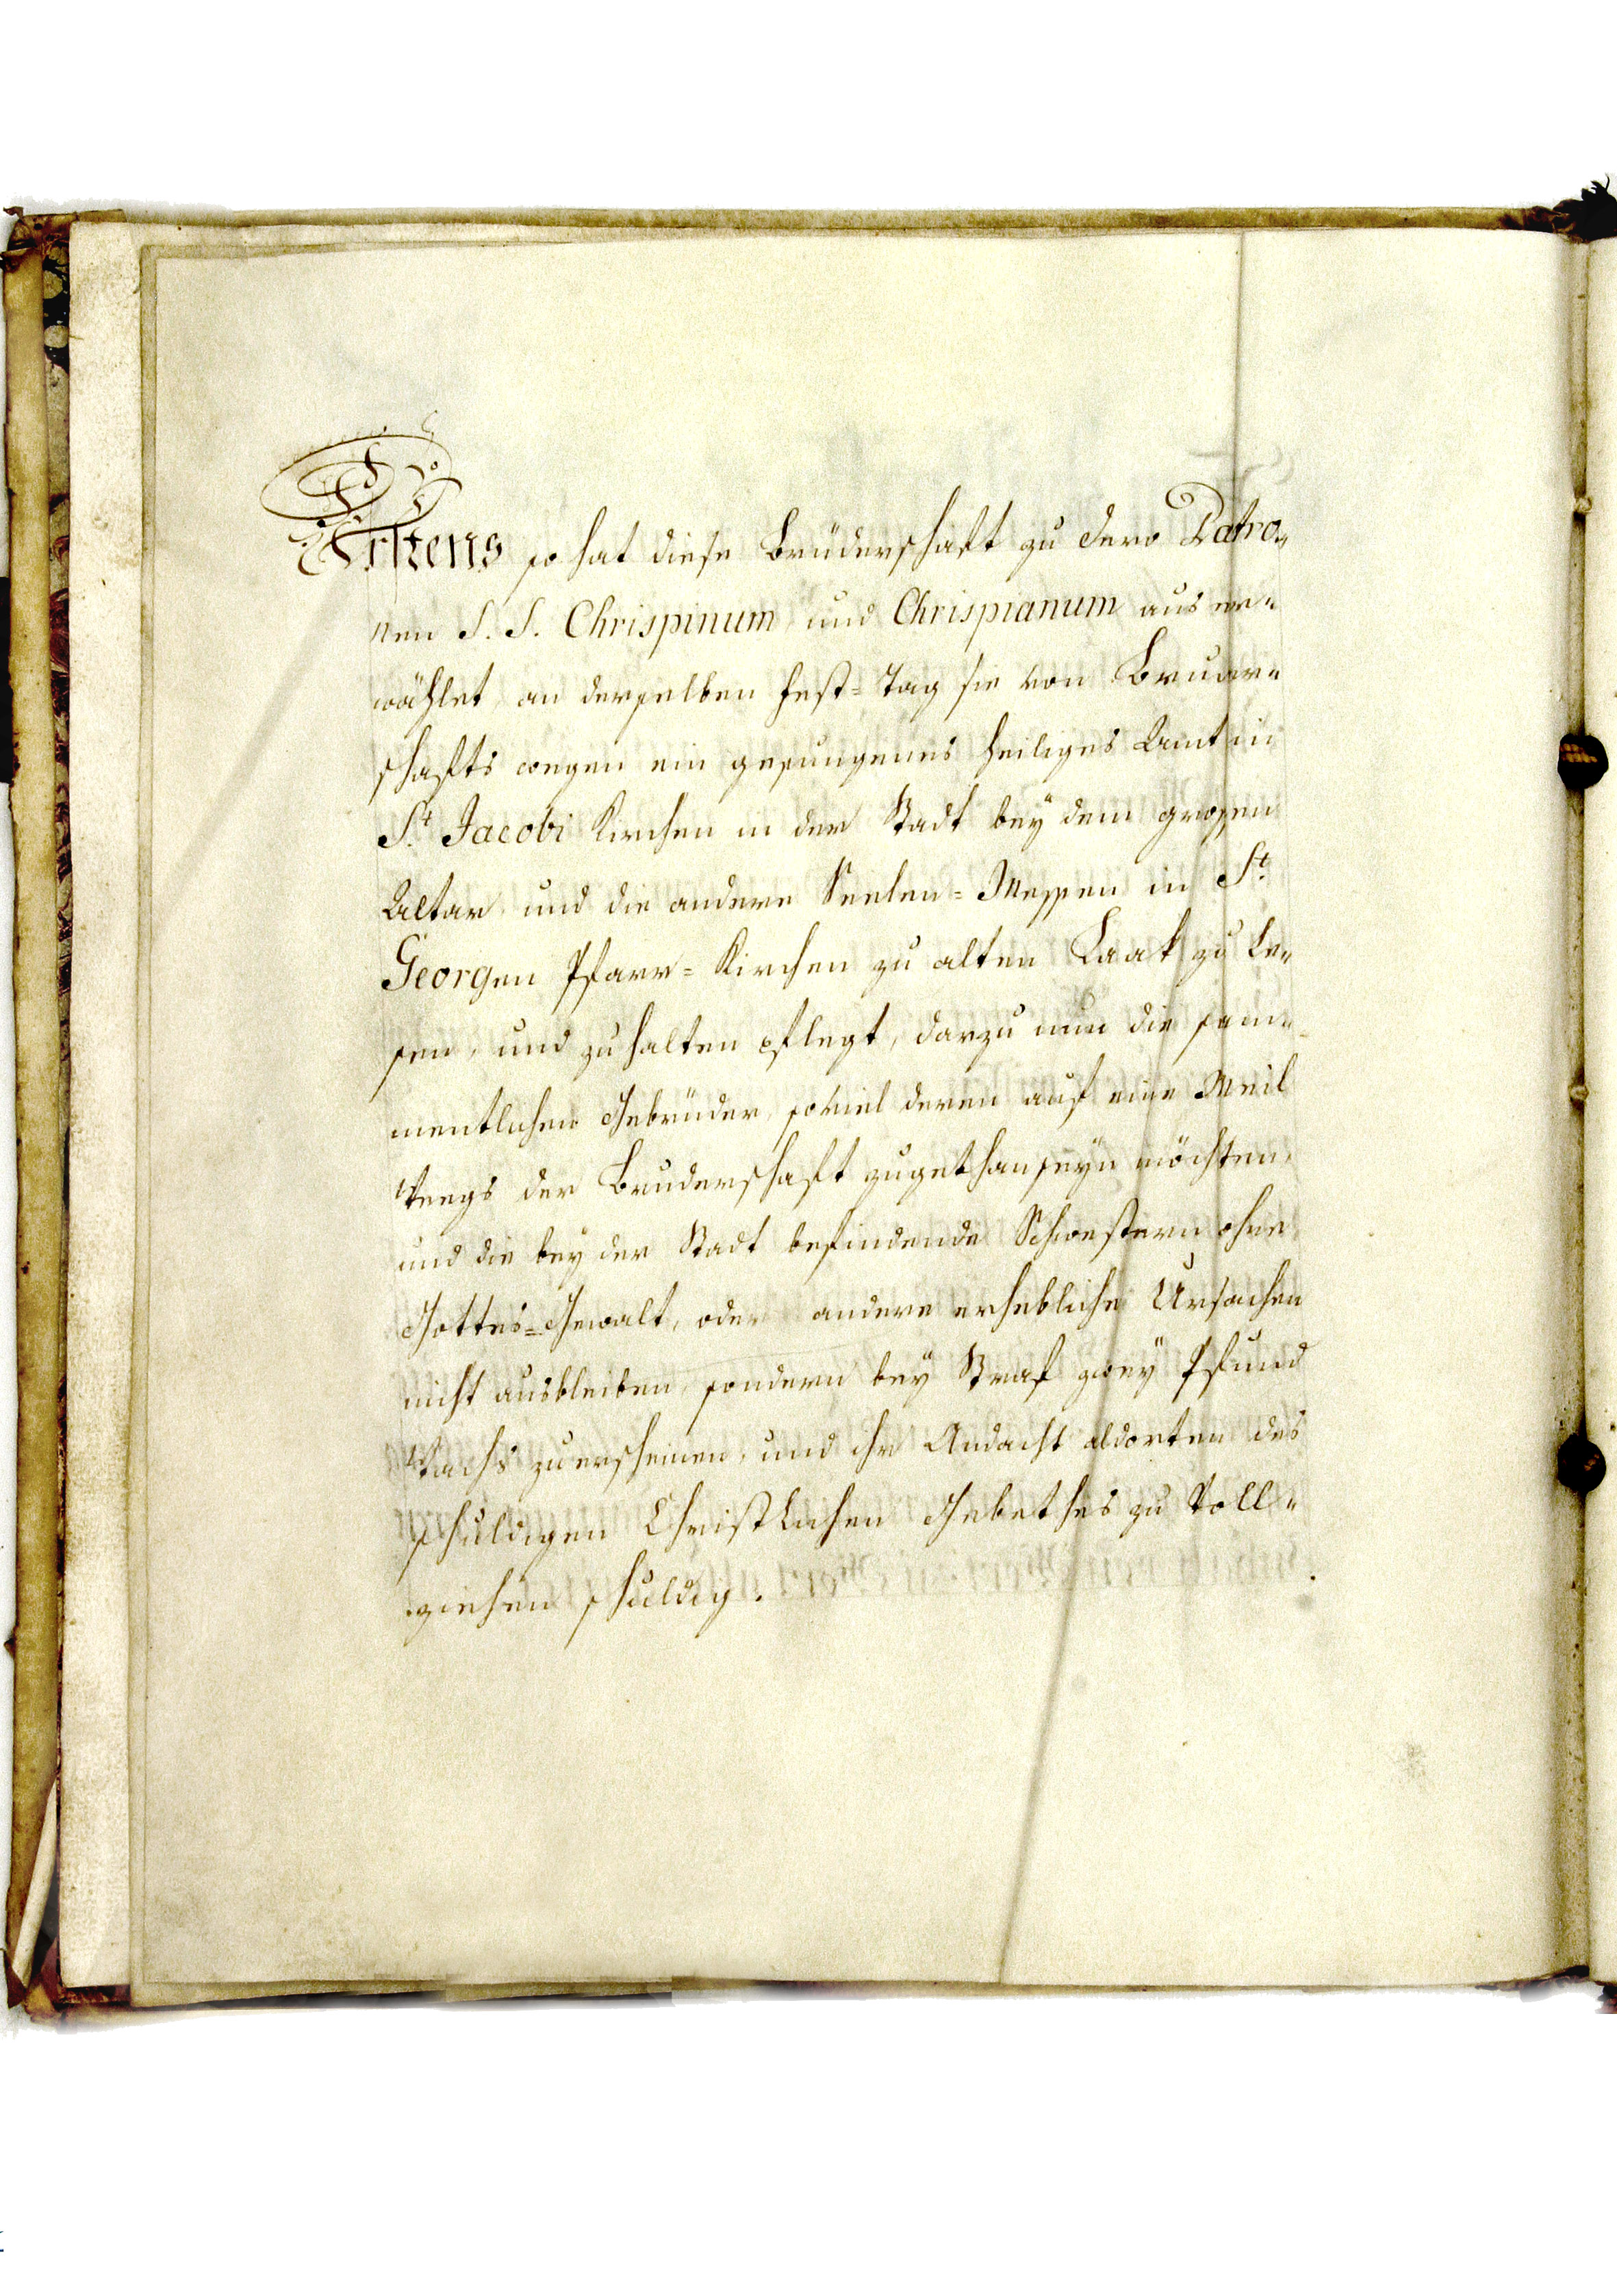 Erstens so hat diese Brüderschaft zu dero Patro-
nen S. S. Chrispinum und Chrispianum aus er-
wählet, an derselben Fest-Tag sie von Bruder-
schafts wegen ein gesungenes heiliges Amt in
St. Jacobi Kirchen in der Stadt beÿ dem grosen
Altar, und die andere Seelen-Messen in St.
Georgen Pfarr-Kirchen zu alten Laak zu le-
sen, und zu halten pflegt, darzu nun die sam-
mentlichen Gebrüder, soviel deren auf eine Meil
Weegs der Bruderschaft zugethan seÿn möchten,
und die beÿ der Stadt befindende Schwestern ohne
Gottes-Gewalt, oder andere erhebliche Ursachen
nicht ausbleiben, sondern beÿ Straf zweÿ Pfund
Wachs zu erscheinen, und ihr Andacht aldorten des
schuldigen Christlichen Gebethes zu Voll-
ziehen schuldig.